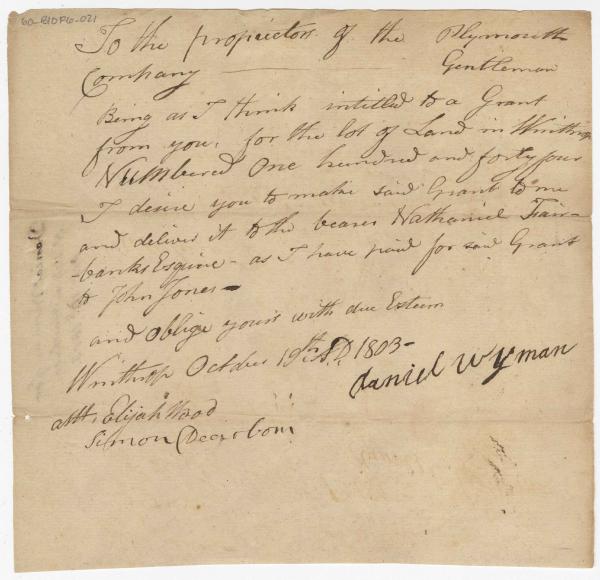 60-B10F6-021
To the proprietors of the Plymouth
Company —— Gentleman
Being as I think intitled to a Grant
from you, for the lot of Land in Winthrop
Numbered One hundred and forty four
I desire you to make said Grant to me
and deliver it to the bearer Nathaniel Fair-
-banks Esquire - as I have paid for said Grant
to John Jones -
and oblige yours with due Esteem
Winthrop October 19th AD. 1803 -
Daniel Wyman
Elijah Wood
Simon Dearborn